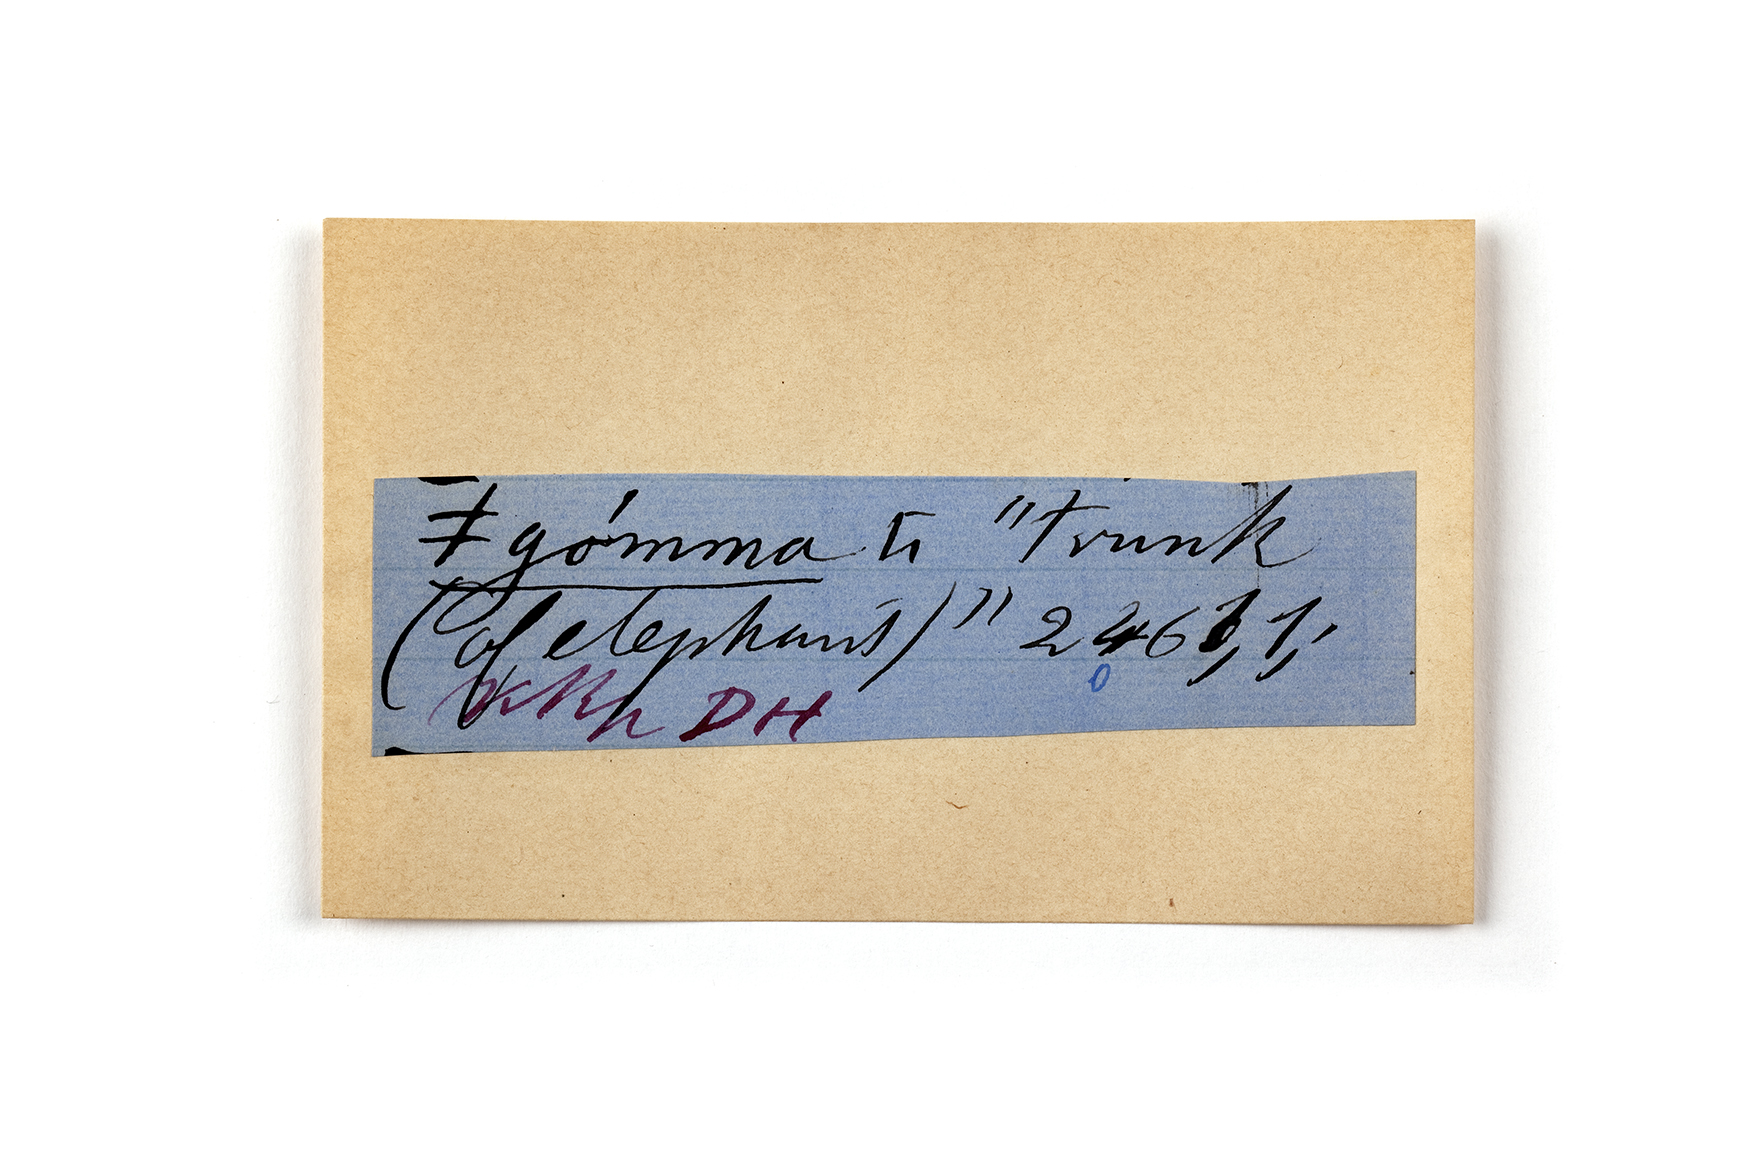 ǂgómma ti "trunk
(of elephant)" 2461, 1,
DH